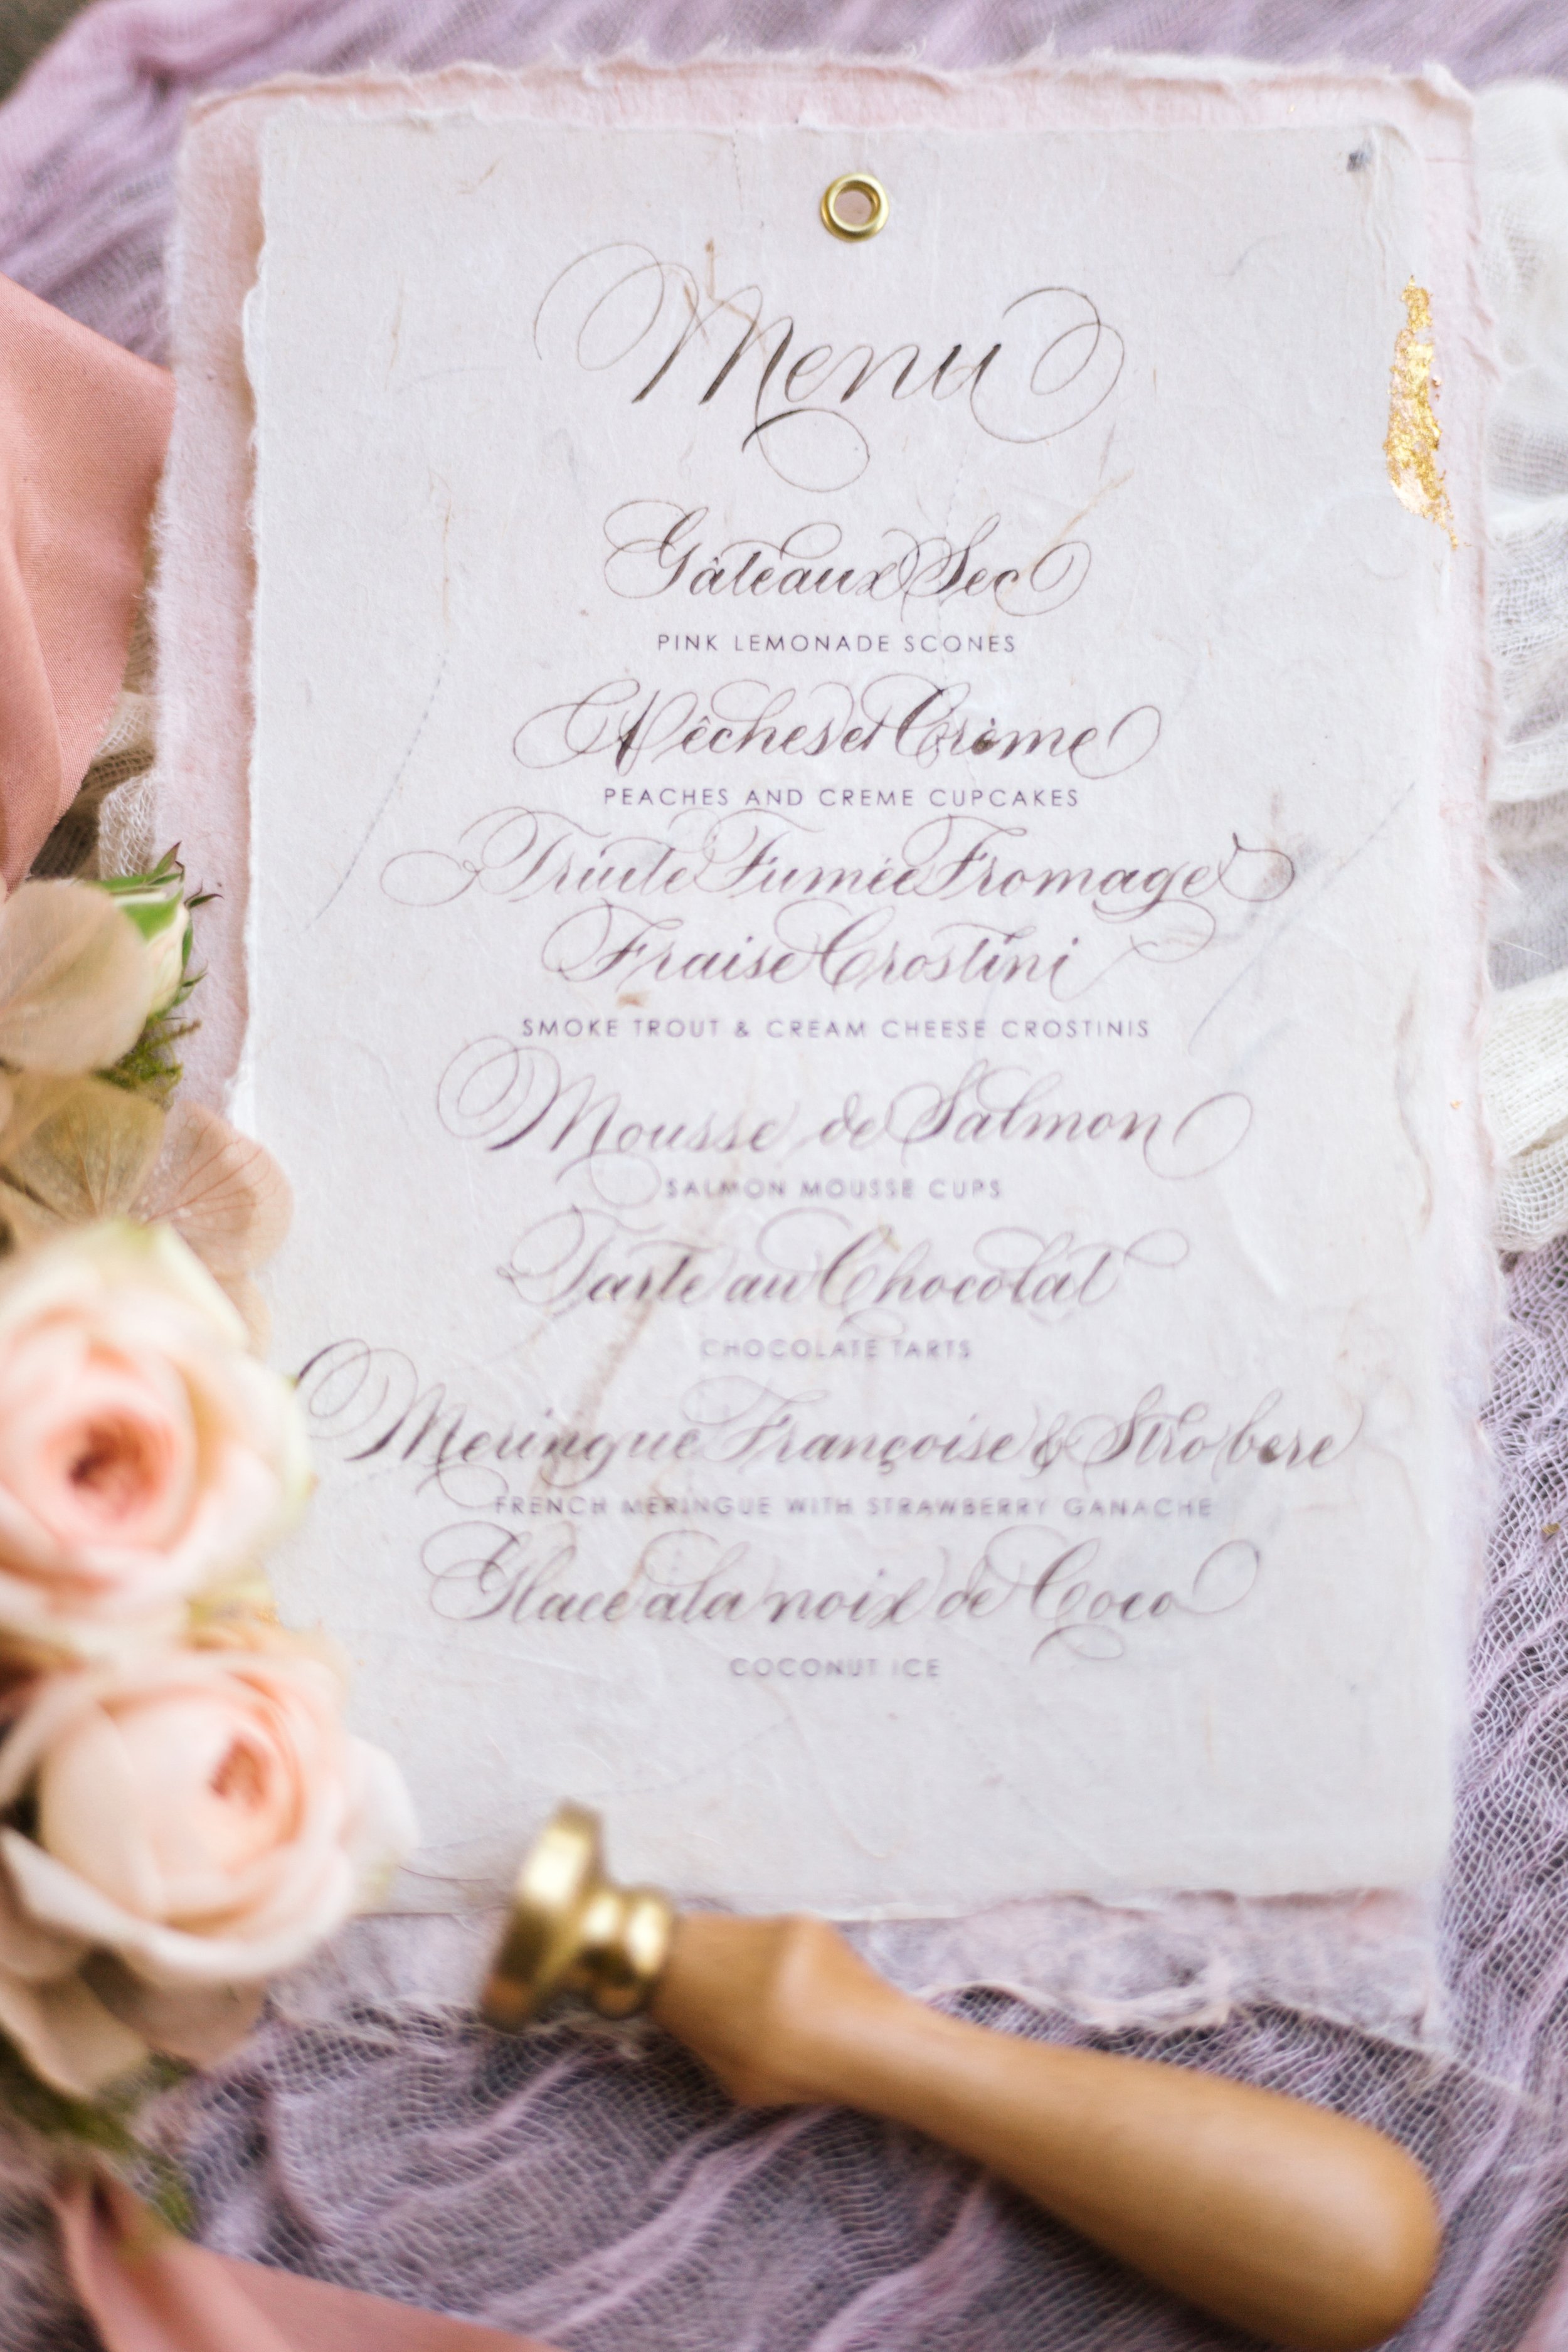 Menu
Gâteaux Sec
PINK LEMONADE SCONES
Pêches et Crème
PEACHES AND CREME CUPCAKES
Truite Fumée Fromage
Fraise Crostini
SMOKE TROUT & CREAM CHEESE CROSTINIS
Mousse de Salmon
SALMON MOUSSE CUPS
Tarte au Chocolat
CHOCOLATE TARTS
Meringue Françoise & Strobere
FRENCH MERINGUE WITH STRAWBERRY GANACHE
Glace a la noix de Coco
COCONUT ICE